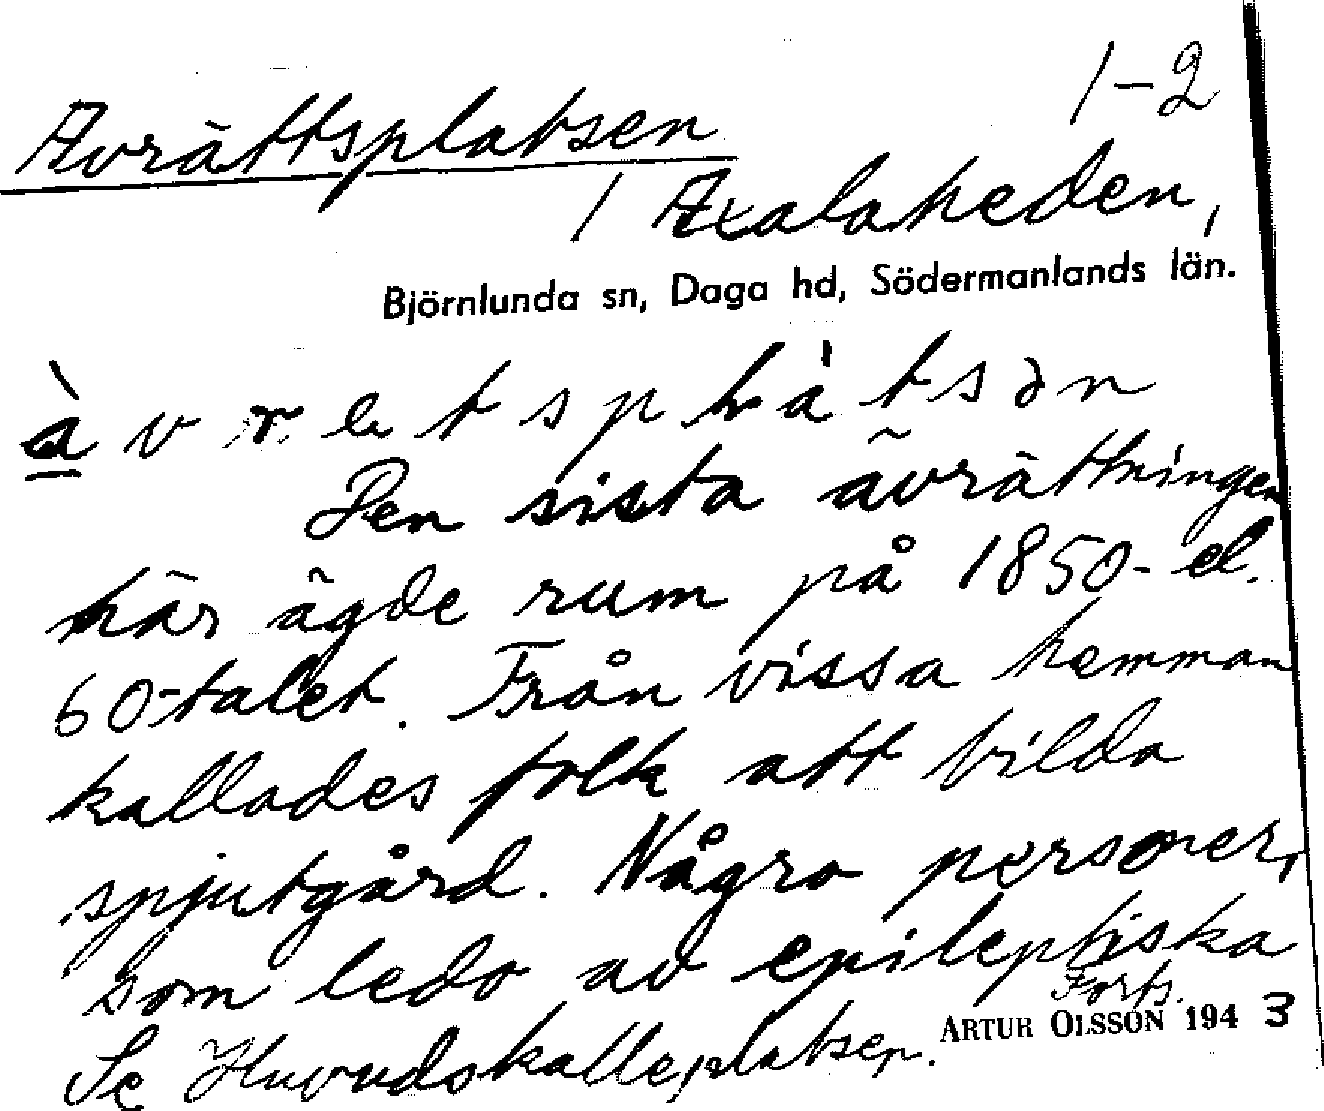 1-2
Avrättsplatsen
/ Axalaheden,
Björnlunda sn, Daga hd, Södermanlands län.
Den sista avrättningen
här ägde rum på 1850- el.
60-talet. Från vissa hemman
kallades folk att bilda
spjutgård. Några personer,
som ledo av epileptiska
Forts.
ARTUR OLSSON 1943
Se Huvudskalleplatsen.